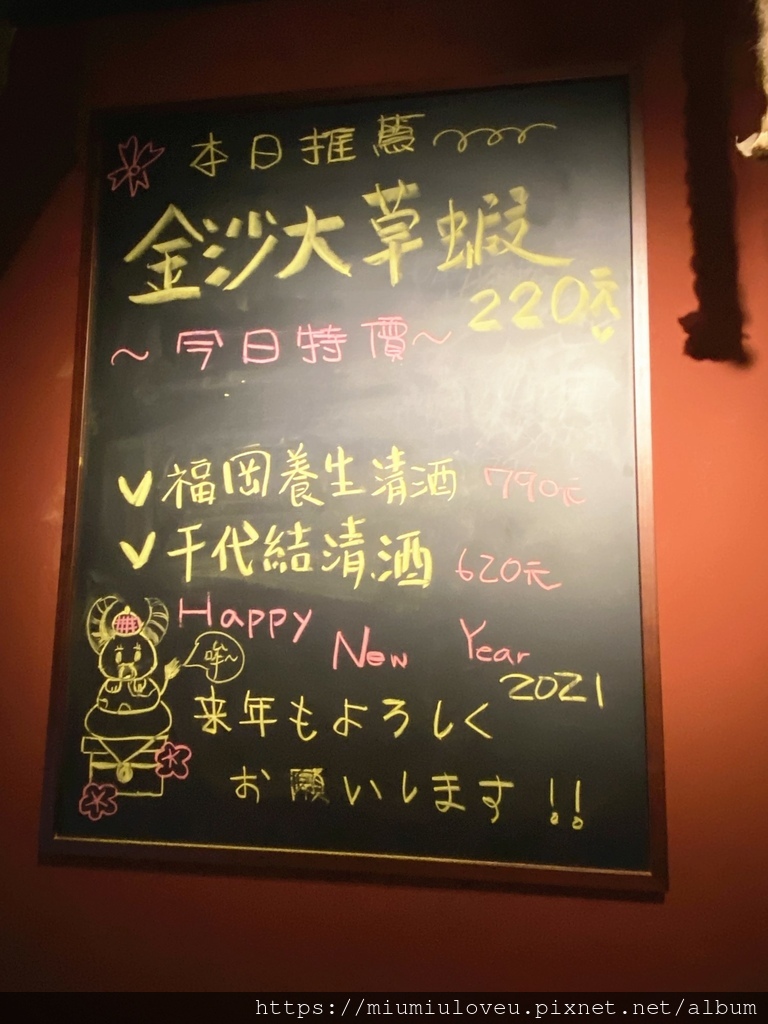 本日推薦
金沙大草蝦
220元
~今日特價~
V 福岡養生清酒 790元
V 千代結清酒 620元
Happy New Year
2021
哞~
来年もよろしく
お願いします!!
https://miumiuloveu.pixnet.net/album